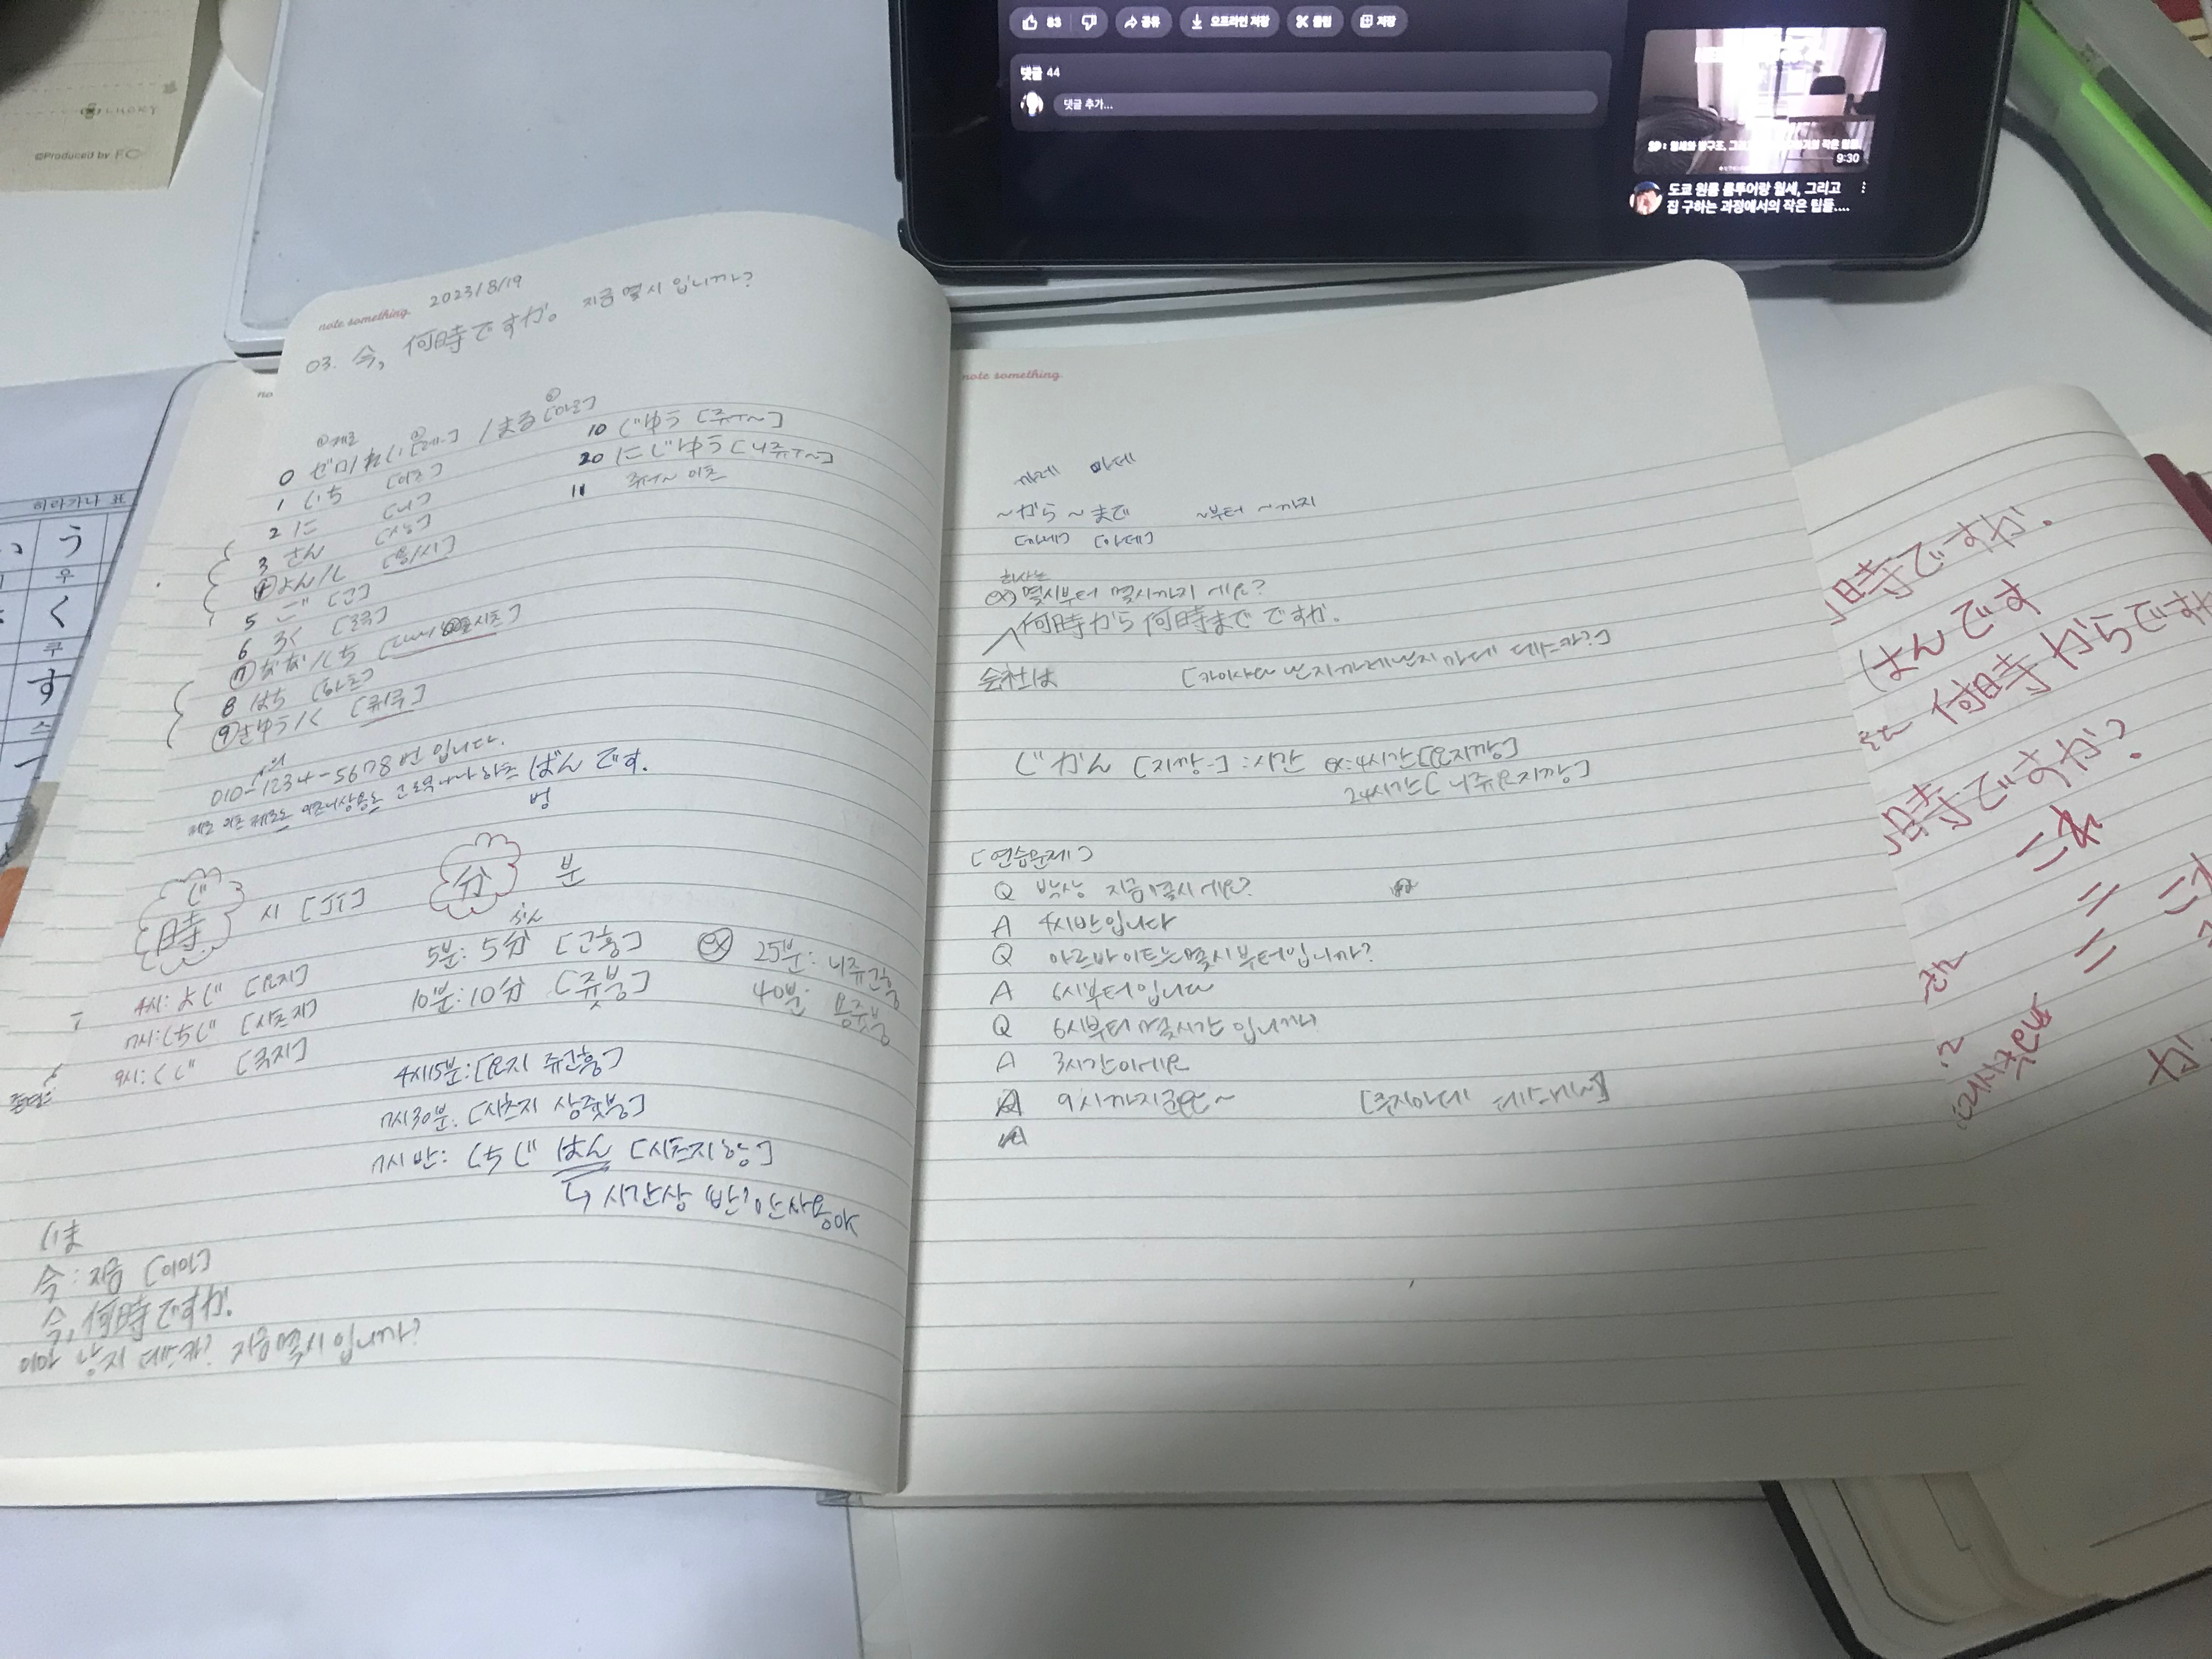 83
공유
오프라인 저장
클립
저장
댓글 44
댓글 추가...
9:30
도쿄 원룸 룸투어랑 월세, 그리고
집 구하는 과정에서의 작은 팁들....
LUCKY
©Produced by FC
히라가나 표
う
우
く
쿠
す
스
note something
2023/8/19
03. 今, 何時ですか。 지금 몇시 입니까?
0 ゼロ/れい /まる
1 いち [이츠]
2 に [니]
3 さん [상]
4 よん/し [용/시]
5 ご [고]
6 ろく [로쿠]
7 なな/しち
8 はち [하츠]
9 きゆう/く [큐/쿠]
10 じゆう [쥬ㅜ~]
20 にじゆう [니쥬ㅜ~]
11 쥬ㅜ~ 이츠
010-1234-5678번 입니다.
ばん です.
벙
じ
時 시 [지]
分 분
4시: よじ [요지]
7시: しちじ [시츠지]
9시: くじ [쿠지]
ふん
5분: 5分 [고훙]
10분: 10分 [쥿붕]
ex 25분: 니쥬고훙
40분: 용쥿붕
4시15분: [요지 쥬고훙]
7시30분: [시츠지 상쥿붕]
7시 반: しちじ はん [시츠지항]
↳ 시간상 '반'만 사용야
いま
今: 지금 [이마]
今, 何時ですか.
이마 낭지 데스까? 지금 몇시 입니까?
note something
까레 마데
~から ~まで ~부터 ~까지
[까레] [마데]
회사는
ex) 몇시부터 몇시까지 에요?
何時から 何時まで ですか.
会社は [카이샤와 난지까레난지 마데 데스까?]
じかん [지깡-] : 시간 ex: 4시간[요지깡]
24시간[니쥬요지깡]
[연습문제]
Q 박상 지금 몇시 에요?
A 4시반입니다
Q 아르바이트는 몇시부터입니까?
A 6시부터입니다
Q 6시부터 몇시간 입니까
A 3시간이에요
9시까지군요~
時ですか.
はんです
何時からですか
時ですか?